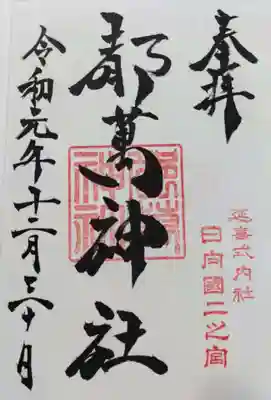 奉拝
延喜式内社
日向國二之宮
都萬神社
令和元年十二月三十日